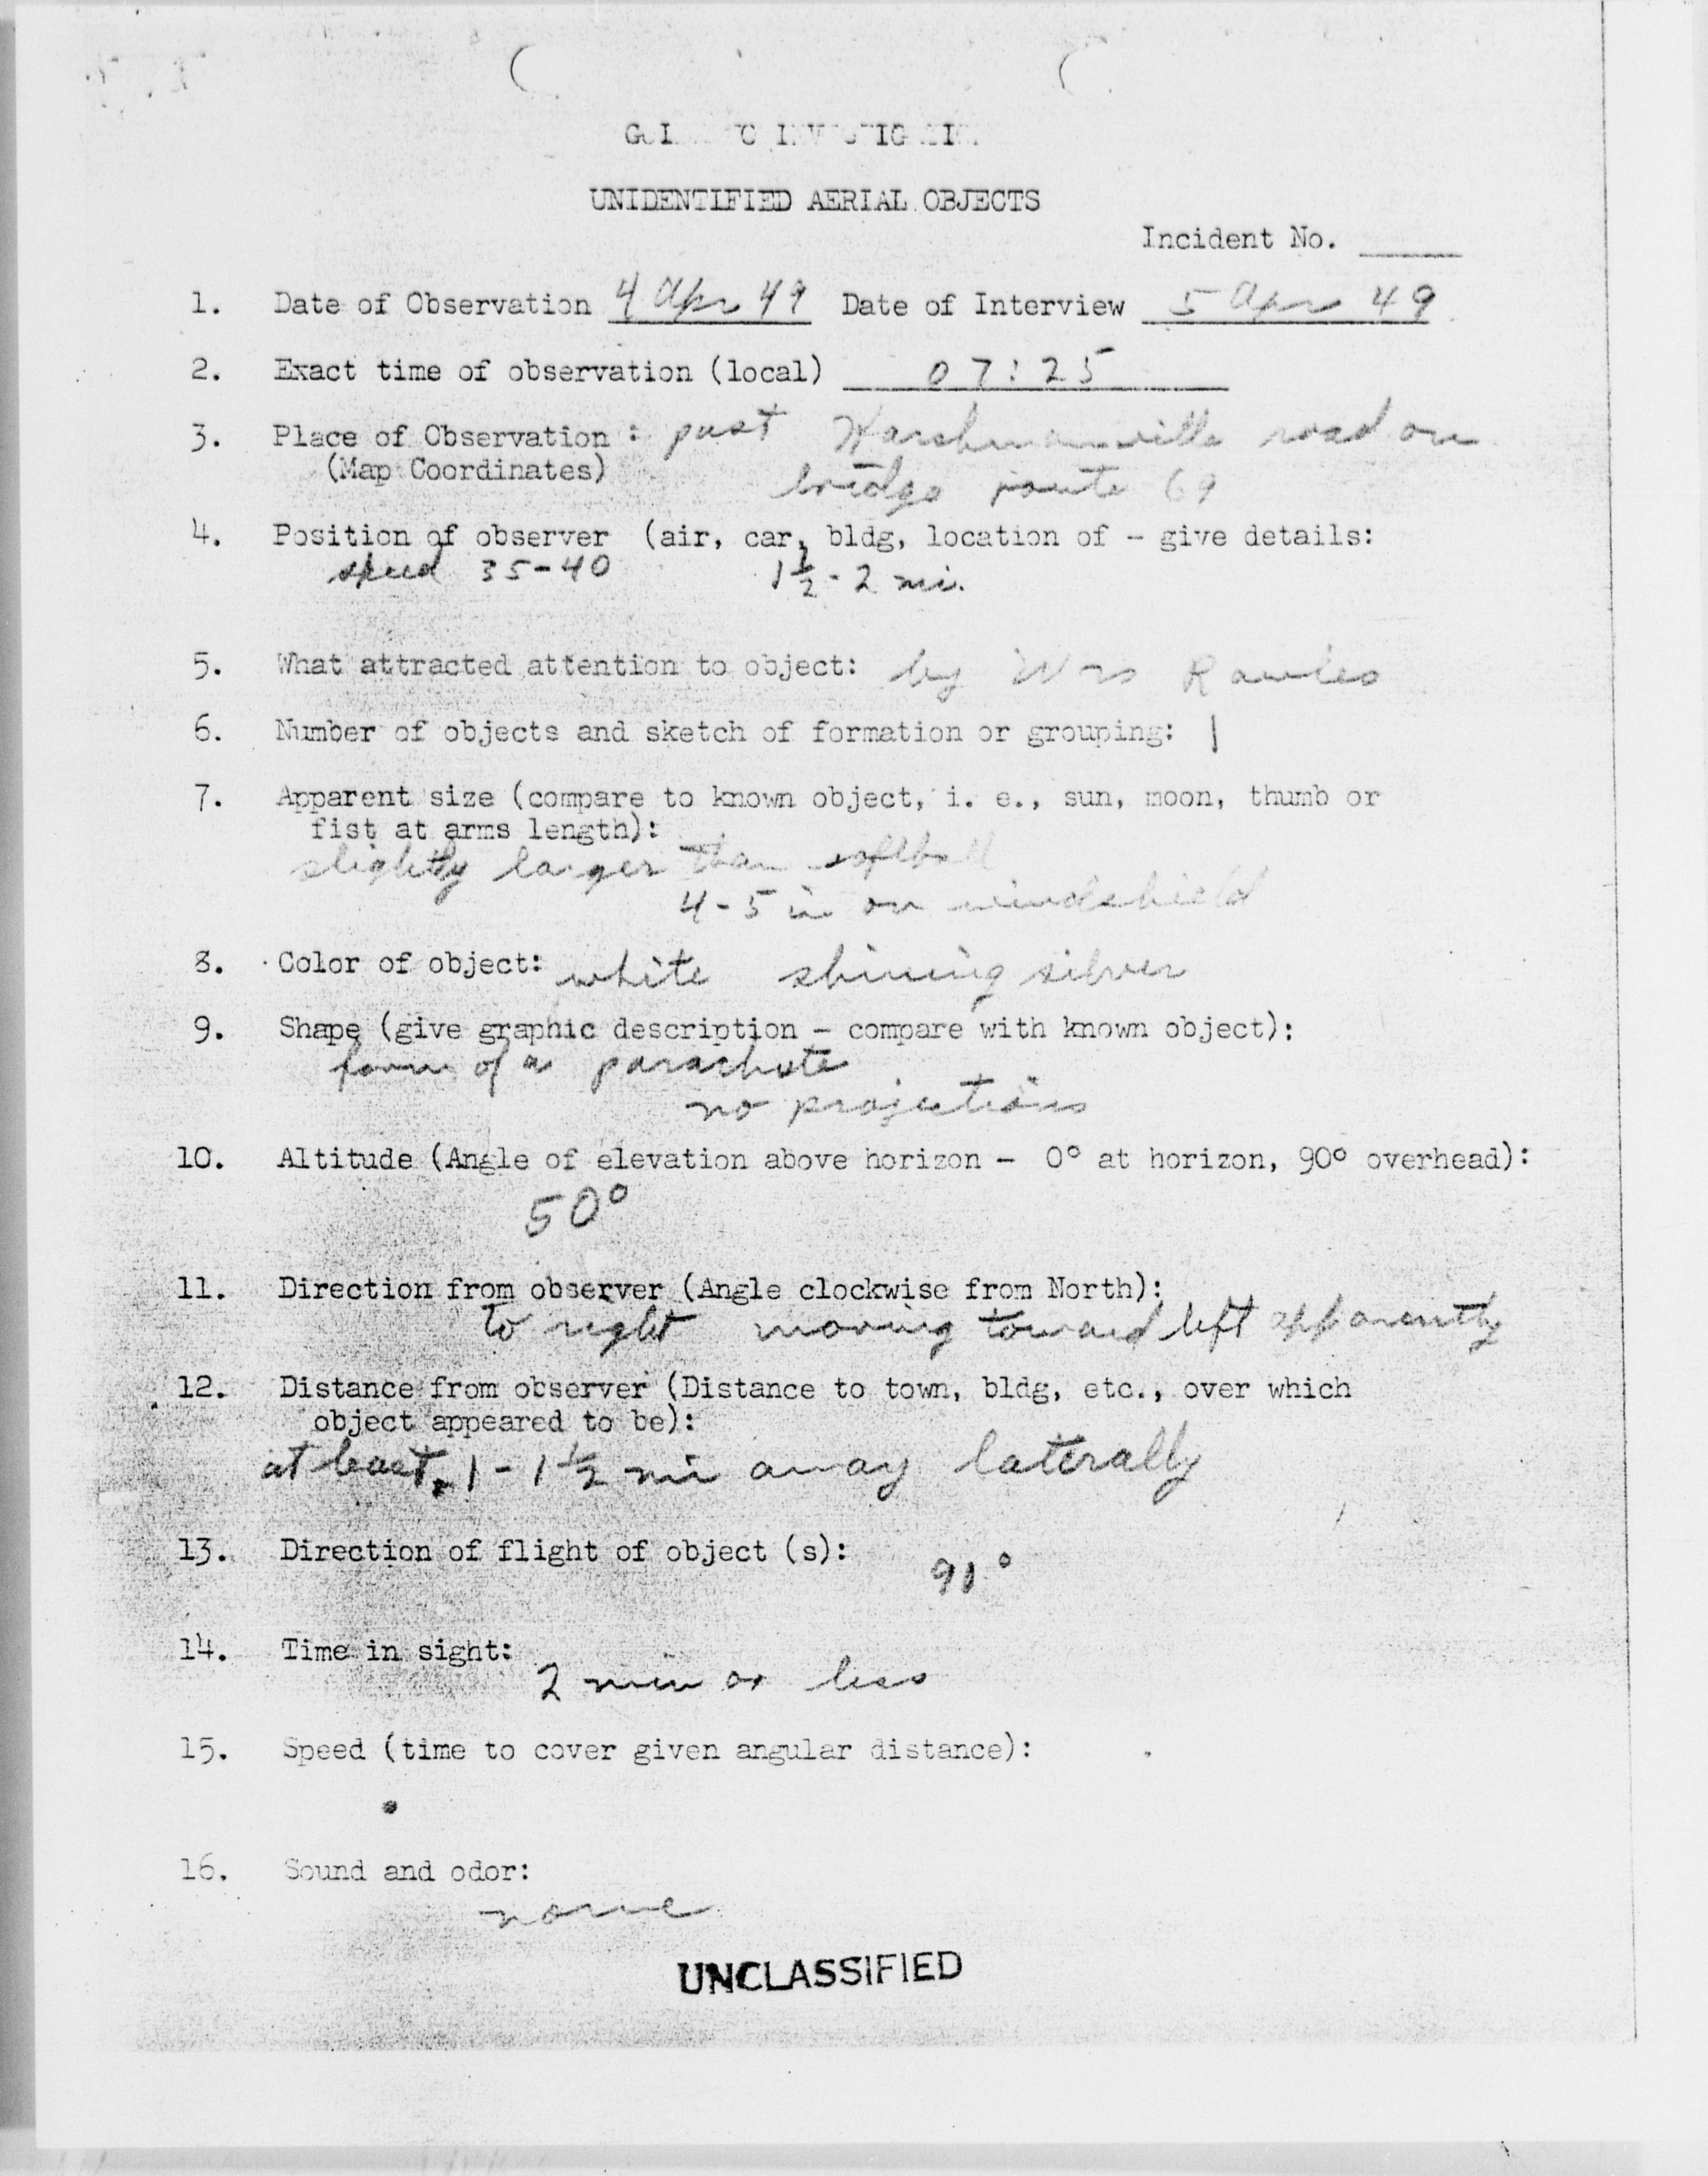 UNIDENTIFIED AERIAL OBJECTS
Incident No. ____
1. Date of Observation 4 Apr 49 Date of Interview 5 Apr 49
2. Exact time of observation (local) 07:25
3. Place of Observation : past Harshmanville road on
(Map Coordinates) bridge route 69
4. Position of observer (air, car, bldg, location of - give details:
speed 35-40 1½ - 2 mi.
5. What attracted attention to object: by Mrs
6. Number of objects and sketch of formation or grouping: 1
7. Apparent size (compare to known object, i. e., sun, moon, thumb or
fist at arms length):
slightly larger than softball
4-5 in on windshield
8. Color of object: white shining silver
9. Shape (give graphic description - compare with known object):
form of a parachute
no projections
10. Altitude (Angle of elevation above horizon - 0° at horizon, 90° overhead):
50°
11. Direction from observer (Angle clockwise from North):
to right moving toward left apparently
12. Distance from observer (Distance to town, bldg, etc., over which
object appeared to be):
at least 1 - 1½ mi away laterally
13. Direction of flight of object (s): 91°
14. Time in sight:
2 min or less
15. Speed (time to cover given angular distance):
16. Sound and odor:
none
UNCLASSIFIED